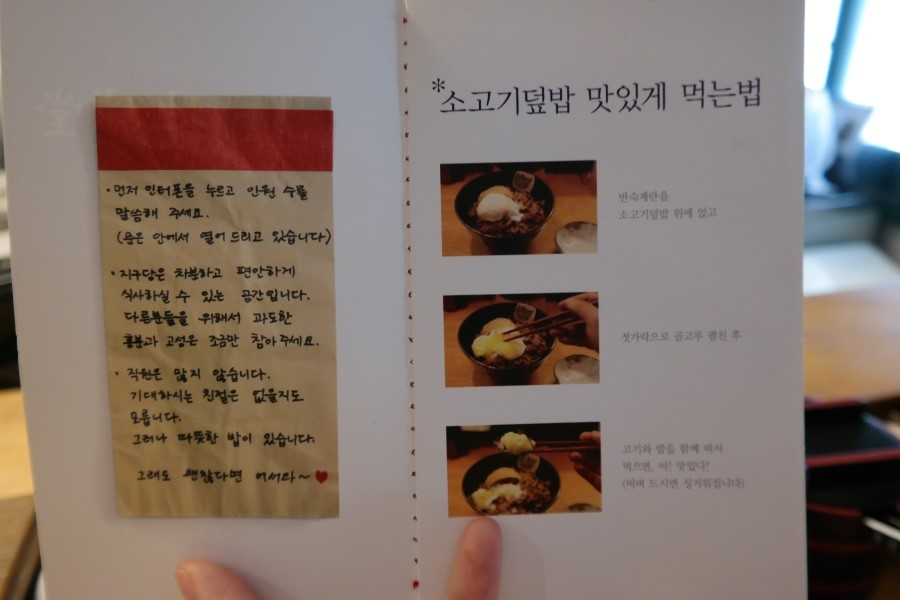 · 먼저 인터폰을 누르고 인원 수를
말씀해 주세요.
(문은 안에서 열어 드리고 있습니다)
· 지구당은 차분하고 편안하게
식사하실 수 있는 공간입니다.
다른분들을 위해서 과도한
흥분과 고성은 조금만 참아주세요.
· 직원은 많지 않습니다.
기대하시는 친절은 없을지도
모릅니다.
그러나 따뜻한 밥이 있습니다.
그래도 괜찮다면 어서와~ ♥
*소고기덮밥 맛있게 먹는법
반숙계란을
소고기덮밥 위에 얹고
젓가락으로 골고루 펼친 후
고기와 밥을 함께 떠서
먹으면, 아! 맛있다!
(비벼 드시면 싱거워집니다)